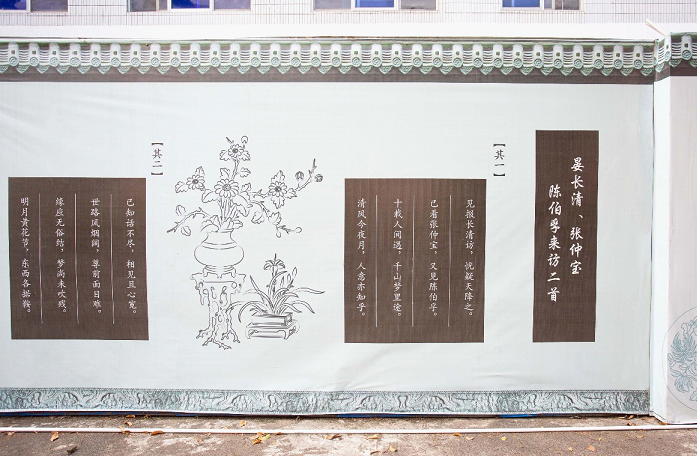 晏长清、张仲宝
陈伯孚来访二首
【其一】
见报长清访,恍疑天降之。
已看张仲宝,又见陈伯孚。
十载人间远,千山梦里途。
清风今夜月,人意亦知乎。
【其二】
已知话不尽,相见且心宽。
世路风烟阔,尊前面目难。
缘应无俗结,梦尚未吹残。
明月黄花节,东西各据鞍。